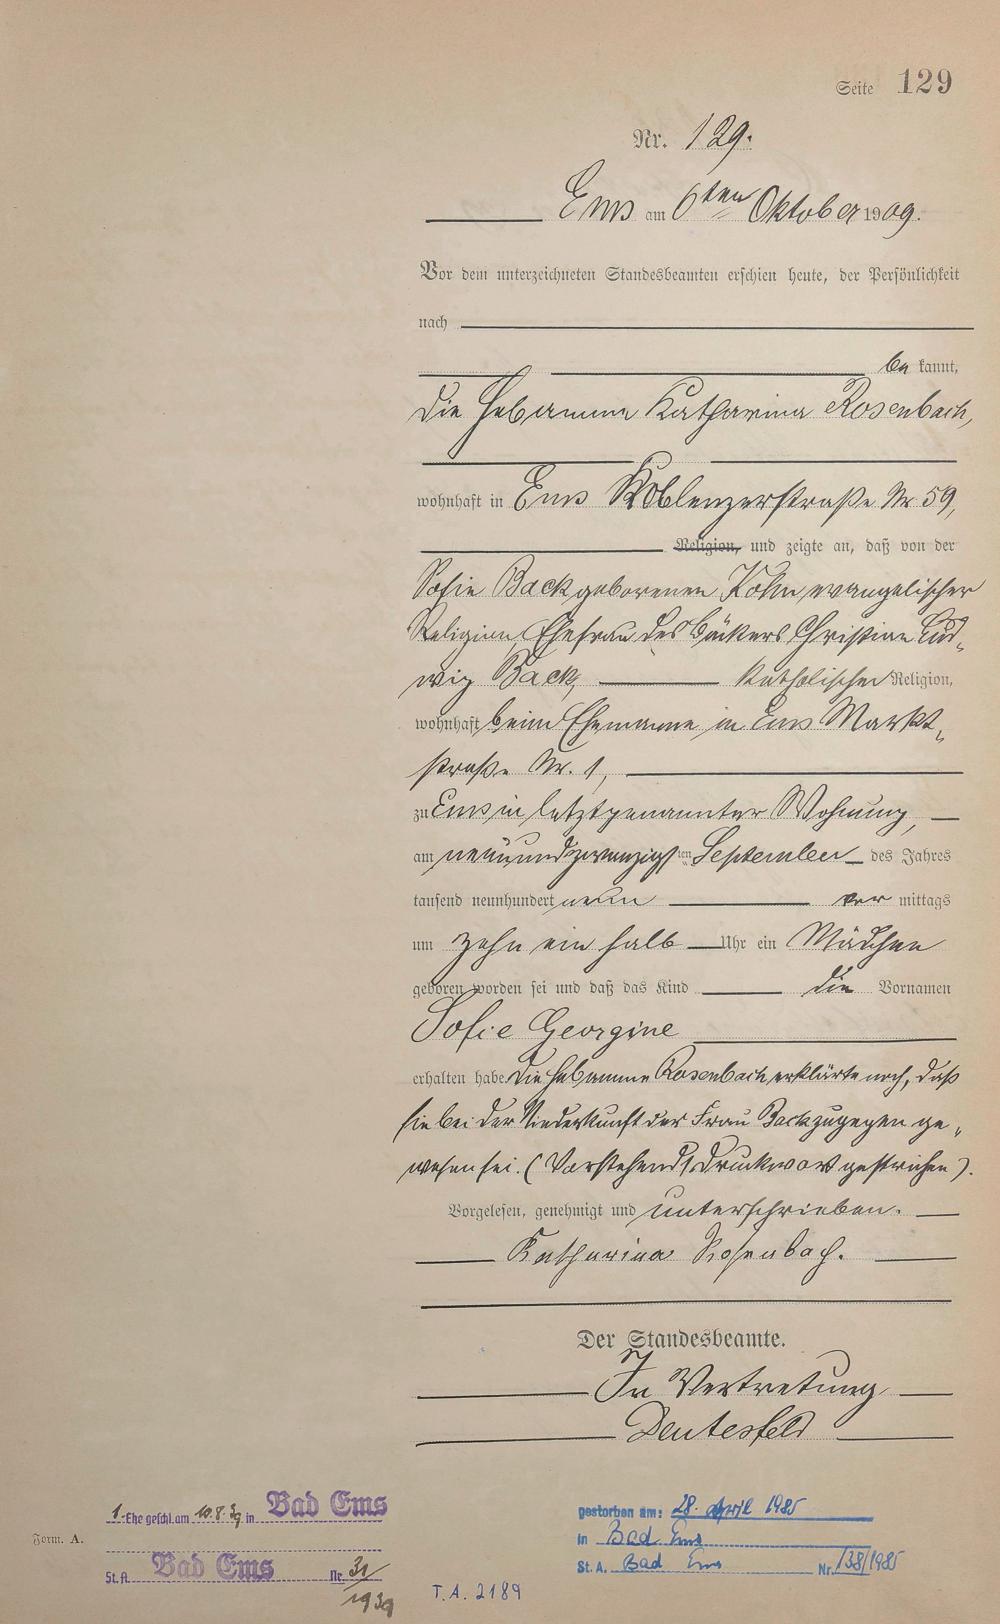 Seite 129
Nr. 129.
Ems am 6ten Oktober 1909.
Vor dem unterzeichneten Standesbeamten erschien heute, der Persönlichkeit
nach
be kannt,
die Hebamme Katharina Rosenbach,
wohnhaft in Ems Koblenzerstraße Nr 59,
Religion, und zeigte an, daß von der
Sofie Back geborenen Kohn evangelischer
Religion, Ehefrau des Bäckers Christian Lud-
wig Back, katholischer Religion,
wohnhaft beim Ehemanne in Ems Markt-
straße Nr. 1,
zu Ems in letztgenannter Wohnung,
am neunundzwanzigsten September des Jahres
tausend neunhundert neun vor mittags
um zehn ein halb Uhr ein Mädchen
geboren worden sei und daß das Kind die Vornamen
Sofie Georgine
erhalten habe. Die Hebamme Rosenbach erklärte noch, daß
sie bei der Niederkunft der Frau Back zugegen ge-
wesen sei. (Vorstehend 1 Druckwort gestrichen).
Vorgelesen, genehmigt und unterschrieben.
Katharina Rosenbach.
Der Standesbeamte.
In Vertretung
1. Ehe geschl. am 10.8.39 in Bad Ems
Form. A.
St.A. Bad Ems Nr. 31/
1939
gestorben am: 28. April 1985
in Bad Ems
St. A. Bad Ems Nr. 138/1985
T.A. 2189